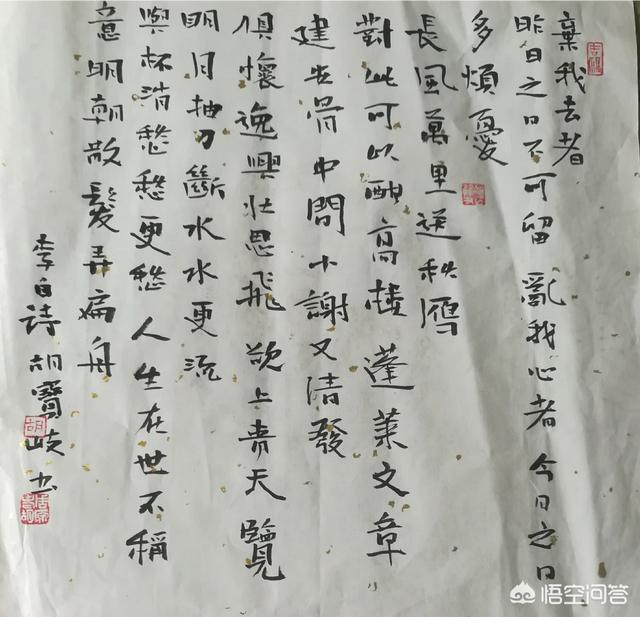 棄我去者
昨日之日不可留亂我心者今日之日
多煩憂
長風萬里送秋雁
對此可以酣高樓蓬萊文章
建安骨中間小謝又清發
俱懷逸興壯思飛欲上青天覽
明月抽刀斷水水更流
舉杯消愁愁更愁人生在世不稱
意明朝散髮弄扁舟
李白詩胡寶岐书
胡
悟空问答